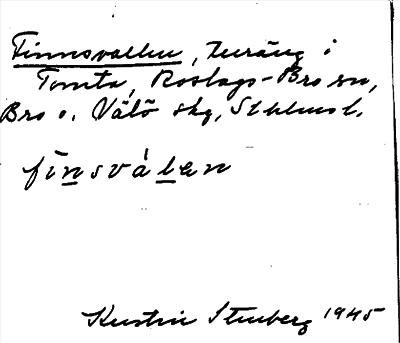 Finnsvallen, teräng i
Tomta, Roslags-Bro sn,
Bro o. Vätö skg, Sthlms l.
fi̅n̲svàl̲en
Kerstin Stenberg 1945